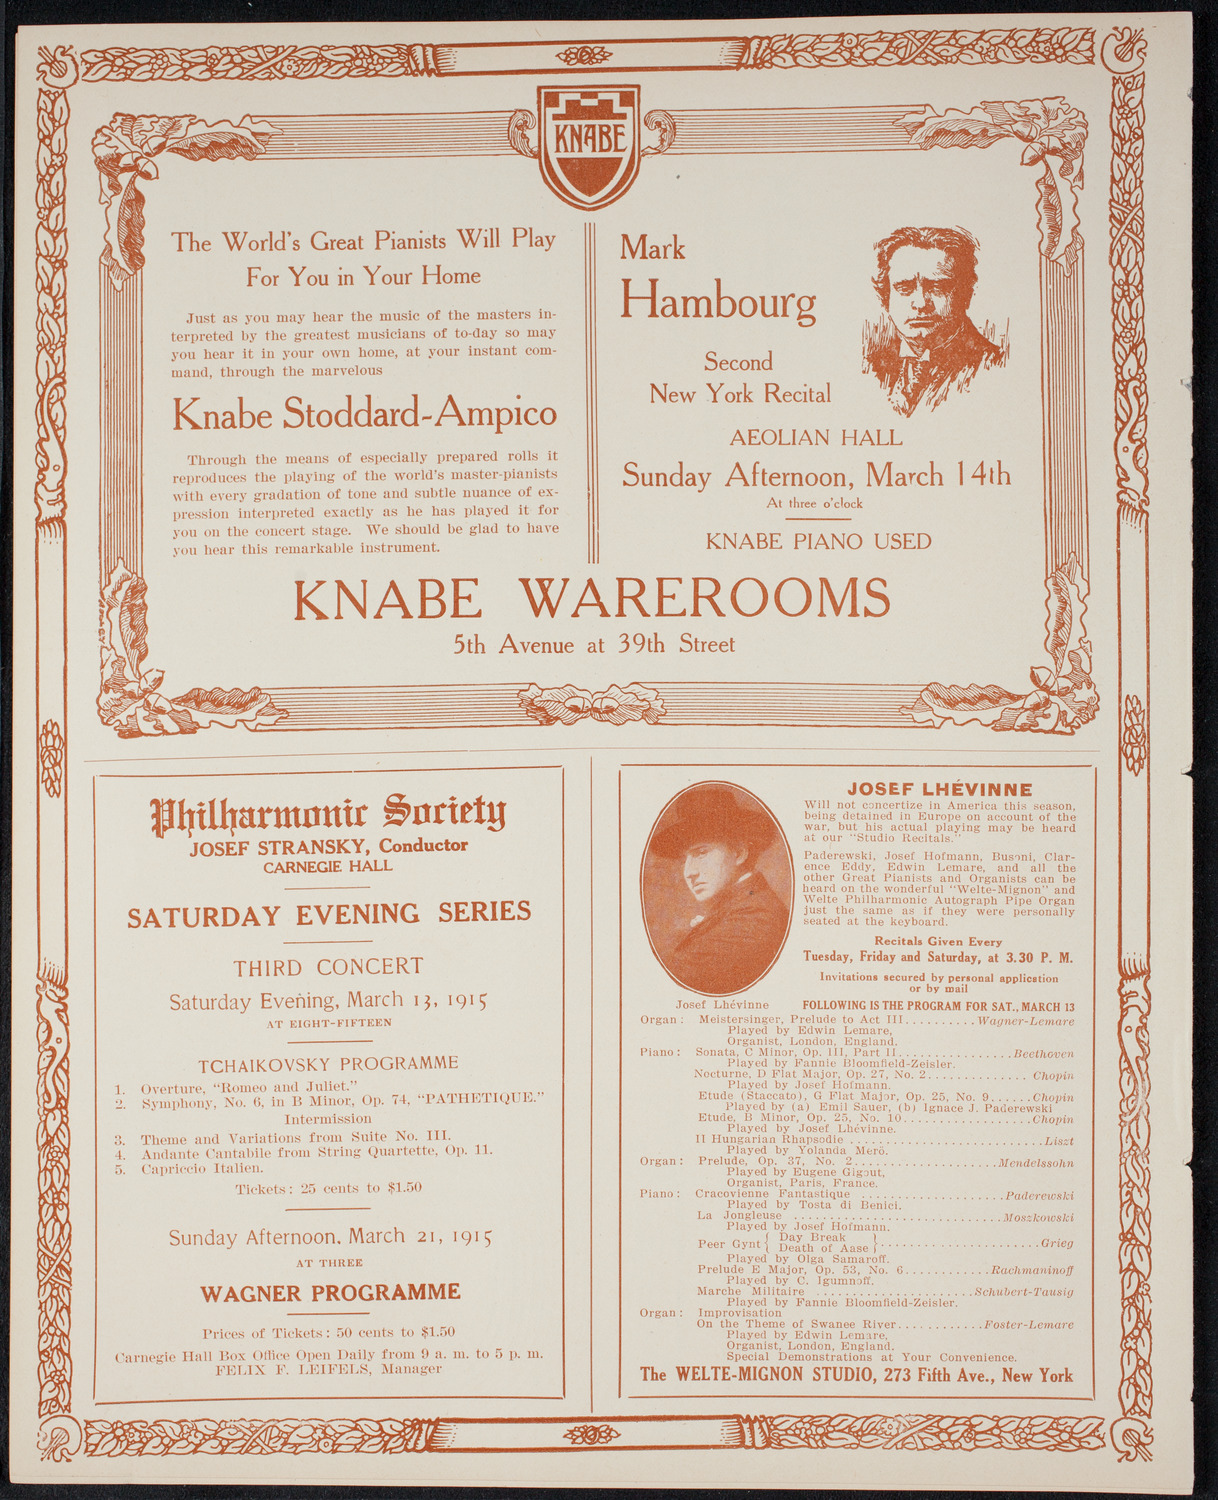 KNABE
The World's Great Pianists Will Play
For You in Your Home
Just as you may hear the music of the masters in-
terpreted by the greatest musicians of to-day so may
you hear it in your own home, at your instant com-
mand, through the marvelous
Knabe Stoddard-Ampico
Through the means of especially prepared rolls it
reproduces the playing of the world's master-pianists
with every gradation of tone and subtle nuance of ex-
pression interpreted exactly as he has played it for
you on the concert stage. We should be glad to have
you hear this remarkable instrument.
Mark
Hambourg
Second
New York Recital
AEOLIAN HALL
Sunday Afternoon, March 14th
At three o'clock
KNABE PIANO USED
KNABE WAREROOMS
5th Avenue at 39th Street
Philharmonic Society
JOSEF STRANSKY, Conductor
CARNEGIE HALL
SATURDAY EVENING SERIES
THIRD CONCERT
Saturday Evening, March 13, 1915
AT EIGHT-FIFTEEN
TCHAIKOVSKY PROGRAMME
1. Overture, "Romeo and Juliet."
2. Symphony, No. 6, in B Minor, Op. 74, "PATHETIQUE."
Intermission
3. Theme and Variations from Suite No. III.
4. Andante Cantabile from String Quartette, Op. 11.
5. Capriccio Italien.
Tickets: 25 cents to $1.50
Sunday Afternoon, March 21, 1915
AT THREE
WAGNER PROGRAMME
Prices of Tickets: 50 cents to $1.50
Carnegie Hall Box Office Open Daily from 9 a. m. to 5 p. m.
FELIX F. LEIFELS, Manager
JOSEF LHÉVINNE
Will not concertize in America this season,
being detained in Europe on account of the
war, but his actual playing may be heard
at our "Studio Recitals."
Paderewski, Josef Hofmann, Busoni, Clar-
ence Eddy, Edwin Lemare, and all the
other Great Pianists and Organists can be
heard on the wonderful "Welte-Mignon" and
Welte Philharmonic Autograph Pipe Organ
just the same as if they were personally
seated at the keyboard.
Recitals Given Every
Tuesday, Friday and Saturday, at 3.30 P. M.
Invitations secured by personal application
or by mail
Josef Lhévinne
FOLLOWING IS THE PROGRAM FOR SAT., MARCH 13
Organ: Meistersinger, Prelude to Act III..........Wagner-Lemare
Played by Edwin Lemare,
Organist, London, England.
Piano: Sonata, C Minor, Op. III, Part II................Beethoven
Played by Fannie Bloomfield-Zeisler.
Nocturne, D Flat Major, Op. 27, No. 2..............Chopin
Played by Josef Hofmann.
Etude (Staccato), G Flat Major, Op. 25, No. 9......Chopin
Played by (a) Emil Sauer, (b) Ignace J. Paderewski
Etude, B Minor, Op. 25, No. 10..................Chopin
Played by Josef Lhévinne.
II Hungarian Rhapsodie ...........................Liszt
Played by Yolanda Merö.
Organ: Prelude, Op. 37, No. 2....................Mendelssohn
Played by Eugene Gigout,
Organist, Paris, France.
Piano: Cracovienne Fantastique ....................Paderewski
Played by Tosta di Benici.
La Jongleuse .............................Moszkowski
Played by Josef Hofmann.
Peer Gynt { Day Break
Death of Aase } .......................Grieg
Played by Olga Samaroff.
Prelude E Major, Op. 53, No. 6............Rachmaninoff
Played by C. Igumnoff.
Marche Militaire ......................Schubert-Tausig
Played by Fannie Bloomfield-Zeisler.
Organ: Improvisation
On the Theme of Swanee River............Foster-Lemare
Played by Edwin Lemare,
Organist, London, England.
Special Demonstrations at Your Convenience.
The WELTE-MIGNON STUDIO, 273 Fifth Ave., New York